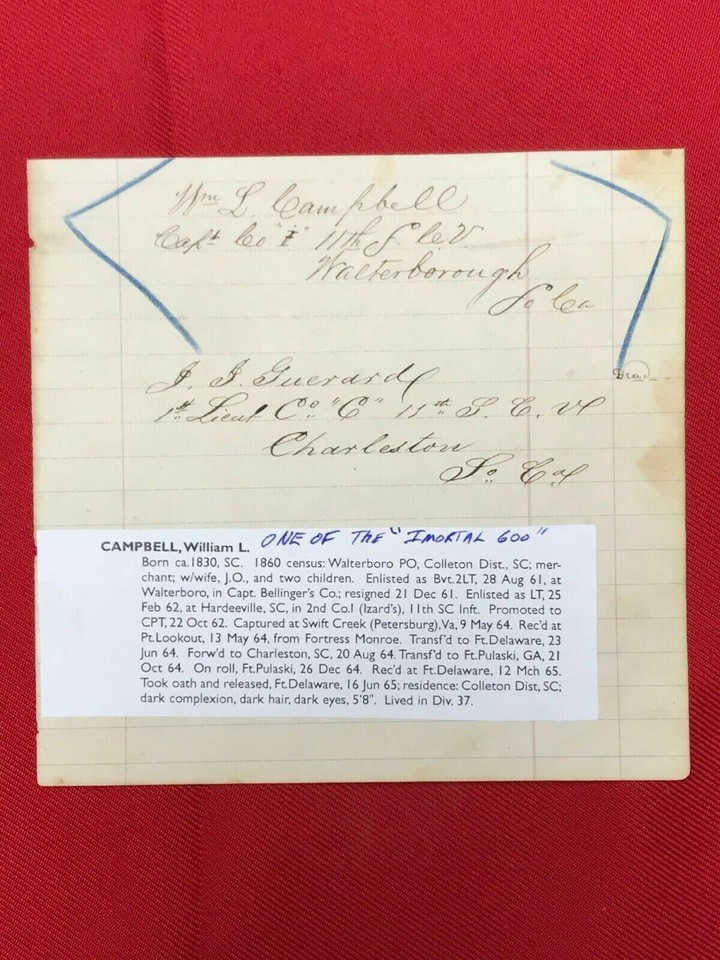 Wm L. Campbell
Capt Co "I" 11th S. C. V.
Walterborough
So Ca
J. J. Guerard
Dead
1st Lieut Co. "C" 11th S. C. V
Charleston
So. Ca
CAMPBELL, William L. ONE OF THE "IMORTAL 600"
Born ca.1830, SC. 1860 census: Walterboro PO, Colleton Dist., SC; mer-
chant; w/wife, J.O., and two children. Enlisted as Bvt.2LT, 28 Aug 61, at
Walterboro, in Capt. Bellinger's Co.; resigned 21 Dec 61. Enlisted as LT, 25
Feb 62, at Hardeeville, SC, in 2nd Co.I (Izard's), 11th SC Inft. Promoted to
CPT, 22 Oct 62. Captured at Swift Creek (Petersburg),Va, 9 May 64. Rec'd at
Pt.Lookout, 13 May 64, from Fortress Monroe. Transf'd to Ft.Delaware, 23
Jun 64. Forw'd to Charleston, SC, 20 Aug 64. Transf'd to Ft.Pulaski, GA, 21
Oct 64. On roll, Ft.Pulaski, 26 Dec 64. Rec'd at Ft.Delaware, 12 Mch 65.
Took oath and released, Ft.Delaware, 16 Jun 65; residence: Colleton Dist, SC;
dark complexion, dark hair, dark eyes, 5'8". Lived in Div. 37.